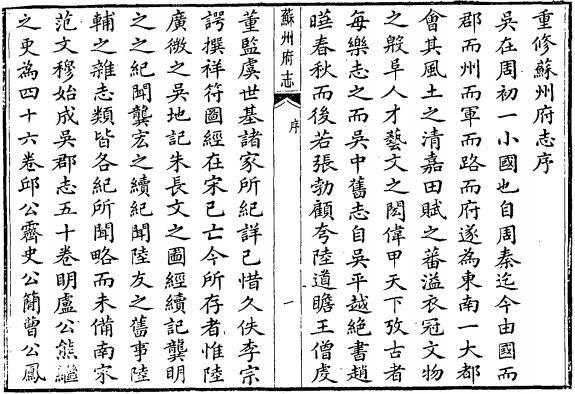 重修蘇州府志序
吳在周初一小國也自周秦迄今由國而
郡而州而軍而路而府遂為東南一大都
會其風土之清嘉田賦之蕃溢衣冠文物
之殷阜人才藝文之閎偉甲天下攷古者
每樂志之而吳中舊志自吳平越絕書趙
曄春秋而後若張勃顧夸陸道瞻王僧虔
蘇州府志
序
一
董監虞世基諸家所紀詳已惜久佚李宗
諤撰祥符圖經在宋已亡今所存者惟陸
廣微之吳地記朱長文之圖經續記龔明
之之紀聞龔宏之續紀聞陸友之舊事陸
輔之雜志類皆各紀所聞略而未備南宋
范文穆始成吳郡志五十卷明盧公熊繼
之更為四十六卷邱公霽史公簡曹公鳳